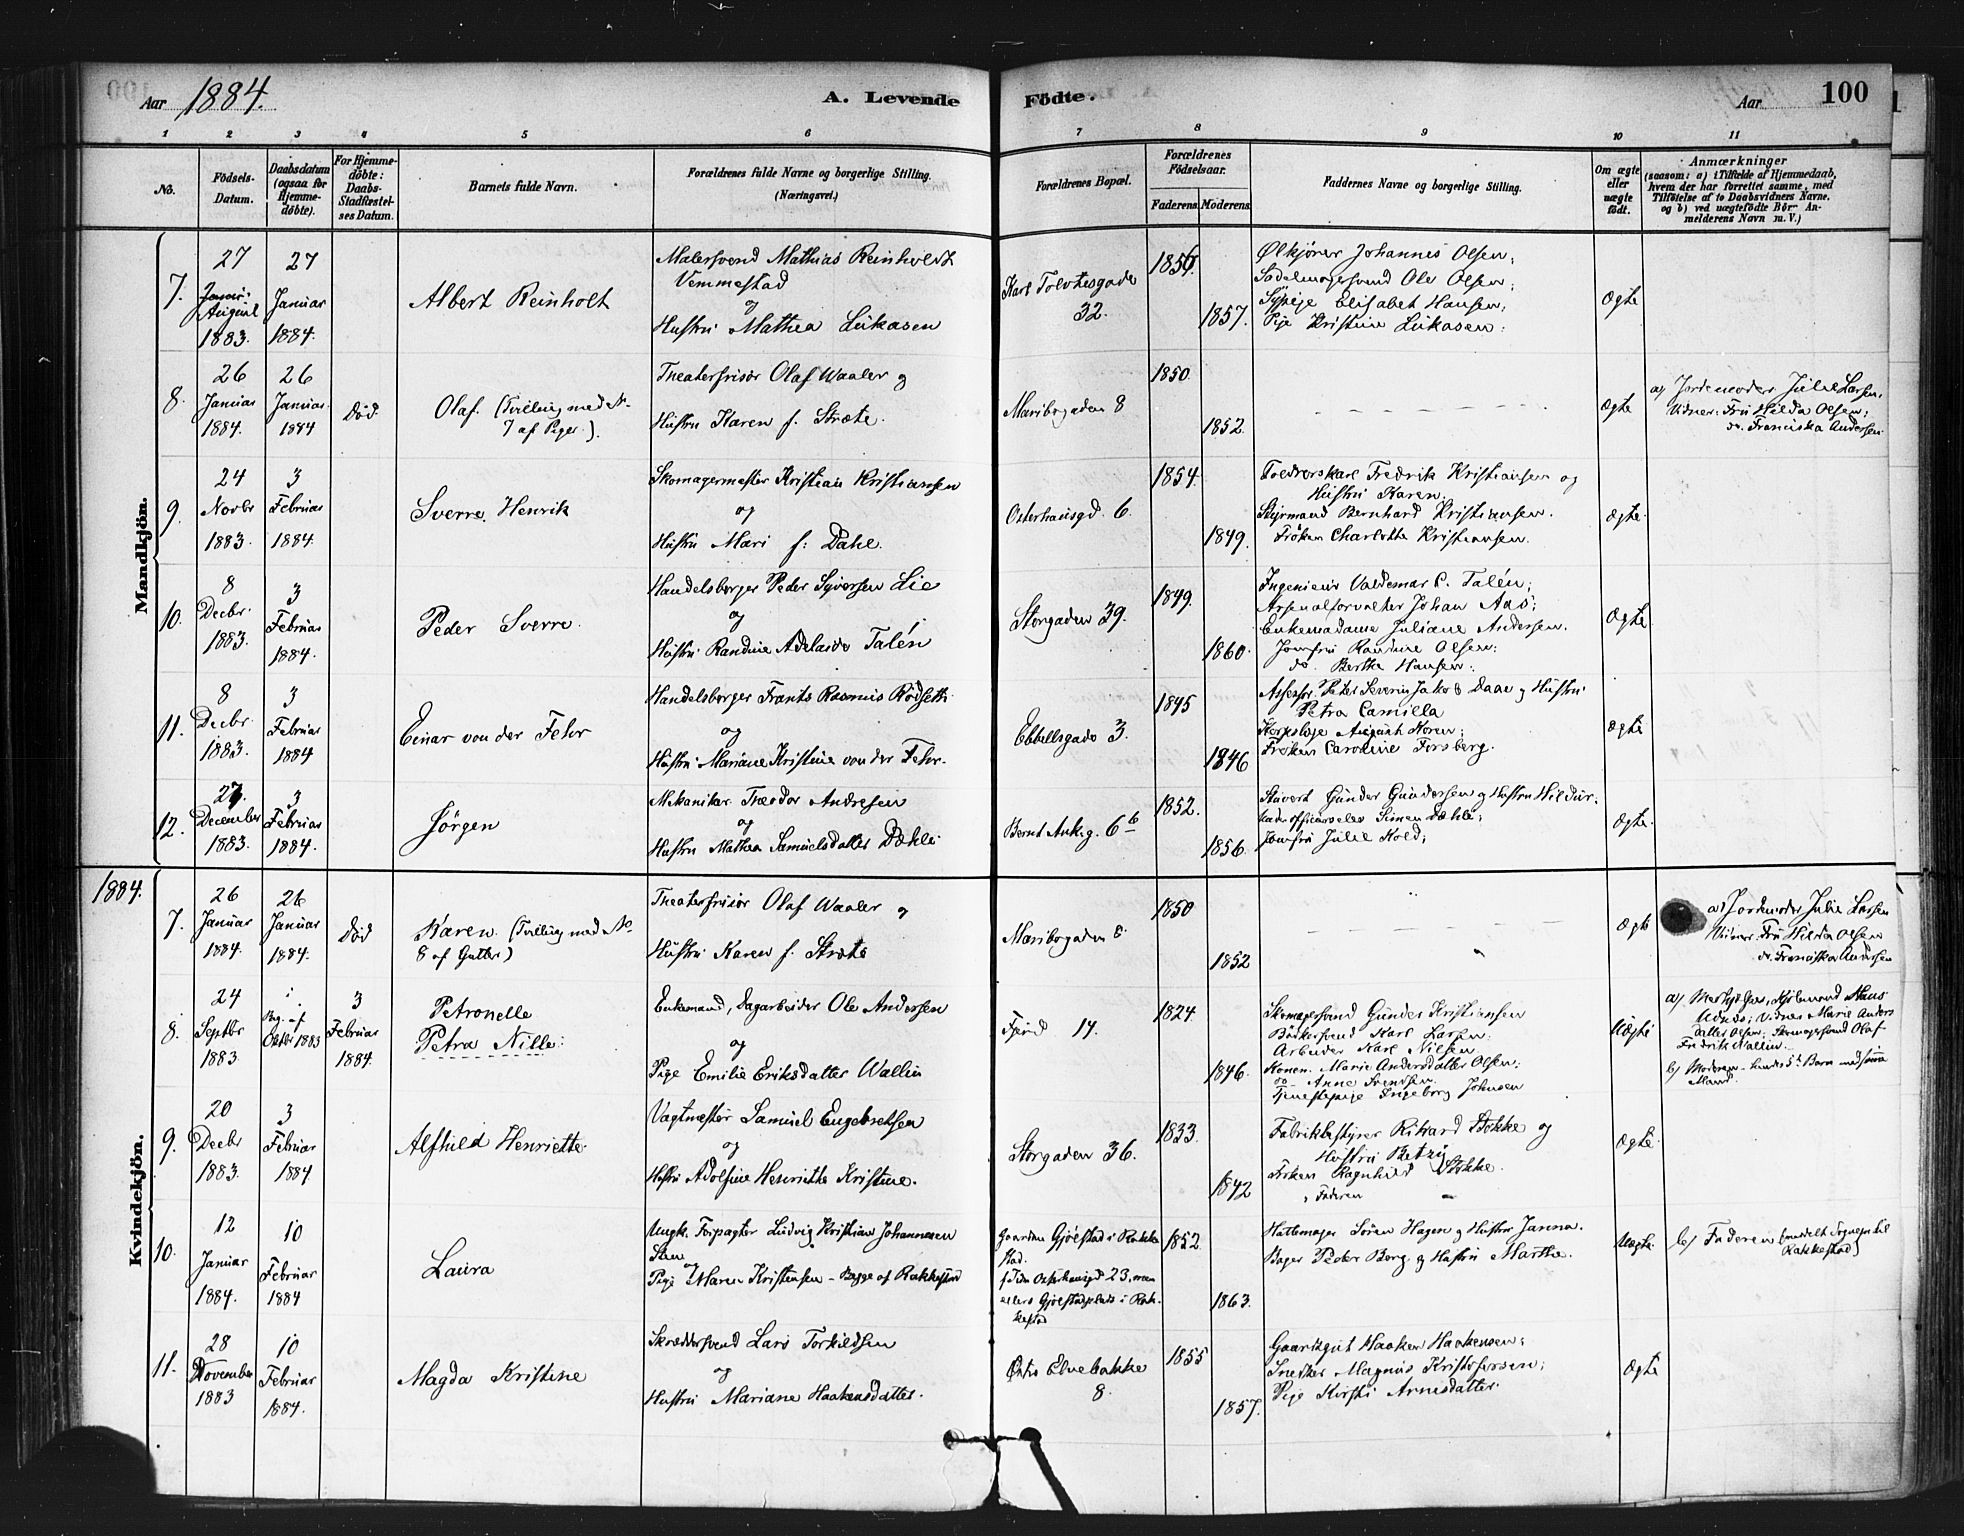 Aar 1884.
A. Levende
Födte.
Aar
100
1 2 3 4 5 6 7 8 9 10 11
No.
Födsels-Datum.
Daabsdatum (ogsaa for Hjemme-döbte).
For Hjemme-döbte: Daabs-Stadfæstel-ses Datum.
Barnets fulde Navn.
Forældrenes fulde Navne og borgerlige Stilling.
(Næringsvei.)
Forældrenes Bopæl.
Forældrenes Födselsaar.
Faderens. Moderens.
Faddernes Navne og borgerlige Stilling.
Om ægte eller uægte födt.
Anmærkninger
(saasom: a) i Tilfælde af Hjemmedaab, hvem der har forrettet samme, med Tilföielse af to Daabsvidners Navne, og b) ved uægtefödte Börn Anmelderens Navn m. V.)
Mandkjön.
7.
27 August 1883.
27 Januar 1884.
Albert Reinholt
Malersvend Mathias Reinholdt
Vemmestad
og
Hustru Mathea Lukasen
Karl Tolvtesgade
32.
1857.
Ølkjörer Johannes Olsen;
Sadelmagersvend Ole Olsen;
Sypige Elisabet Hansen;
Pige Kristine Lukasen.
Ægte
8.
26 Januar 1884.
26 Januar 1884
Död
Olaf. (Tvilling med N.
7 af Piger.)
Theaterfrisör Olaf Waaler og
Hustru Karen f. Stræte.
Maribogaden 8
1850.
1852.
Ægte
a) Jordemoder Julie Larsen,
Vidner: Fru Hilda Olsen;
do. Franciska Andersen
9.
24 Novbr 1883.
3 Februar 1884.
Sverre Henrik
Skomagermester Kristian Kristiansen
og
Hustru Mari f: Dahl.
Osterhausgd. 6.
1854.
1849.
Fredrik Kristiansen og
Hustru Karen.
Styrmand Bernhard Kristiansen.
Fröken Charlotte Kristiansen.
Ægte.
10.
8 Decbr. 1883.
3 Februar 1884.
Peder Sverre.
Handelsborger Peder Syversen Lie
og
Hustru Randine Adelaide Talén
Storgaden 39.
1849.
1860.
Ingenieur Valdemar C. Talén;
Arsenalforvalter Johan Aas;
Enkemadame Juliane Andersen.
Jomfru Randine Olsen;
do. Berthe Hansen;
Ægte.
11.
8 Decbr. 1883.
3 Februar 1884
Einar von der Fehr
Handelsborger Frants Rasmus Rödseth
og
Hustru Mariane Kristine von der Fehr.
Ebbellsgade 3.
1845
1846
Assessor Peter Severin Jakob Daae og Hustru
Petra Camilla
Korpslæge August Koren;
Fröken Caroline Forsberg.
Ægte
12.
27. December 1883.
3 Februar 1884.
Jörgen
Mekaniker Theodor Andresen
og
Hustru Mathea Samuelsdatter Dæhli
Bernt Ankg. 6b
1852.
1856.
Stuvert Gunder Gundersen og Hustru Hildur.
Underofficerselev Simen Dæhli;
Jomfru Julie Kold;
Ægte.
Kvindekjön.
1884.
7.
26 Januar 1884.
26 Januar 1884.
Död
Karen. (Tvilling med N.
8 af Gutter)
Theaterfrisör Olaf Waaler og
Hustru Karen f. Stræte
Maribogaden 8.
1850
1852
Ægte
a) Jordemoder Julie Larsen
Vidner: Fru Hilda Olsen
do. Franciska Andersen
8.
24 Septbr 1883.
Beg. af Oktbr 1883
3 Februar 1884.
Petronelle
Petra Nille.
Enkemand, Dagarbeider Ole Andersen
og
Pige Emilie Eriksdatter Wallin
17.
1824
1846.
Skomagersvend Gunder Kristiansen
Bödkersvend Karl Larsen.
Arbeider Karl Nilsen
Konen Marie Andersdatter Olsen;
do Anne Svendsen.
Tjenestepige Ingeborg Johnsen
Uægte
Vidner Marie Anders
datter Olsen; Skomagersvend Olaf
Fredrik Wallin.
b) Moderen - hendes 5te Barn med samme
Mand.
9.
20 Decbr 1883.
3 Februar 1884.
Alfhild Henriette.
Vagtmester Samuel Engebretsen
og
Hustru Adolfine Henriette Kristine.
Storgaden 36.
1833.
1842
Fabrikbestyrer Rikard Stokke og
Hustru Betzy
Fröken Ragnhild Stokke.
Faderen
Ægte.
10.
12 Januar 1884.
10 Februar 1884
Laura
Ungk. Forpagter Ludvig Kristian Johannesen
Sten
og
Pige Maren Kristensen - Begge af Rakkestad
Gaarden Gjölstad i Rakke
stad.
f. Tiden Osterhausgd 23, men
ellers Gjölstadplads i Rak-
kestad
1852
1863.
Hattemager Sören Hagen og Hustru Janna.
Bager Peder Berg og Hustru Marthe.
Uægte.
b) Faderen (meddelt Sognepr. til
Rakkestad)
11.
28 November 1883
10 Februar 1884.
Magda Kristine
Skræddersvend Lars Torkildsen
og
Hustru Mariane Haakensdatter.
Östre Elvebakke
8.
1855
1857.
Gaardsgut Haaken Haakensen;
Snedker Magnus Kristofersen;
Pige Kirsti Arnesdatter.
Ægte